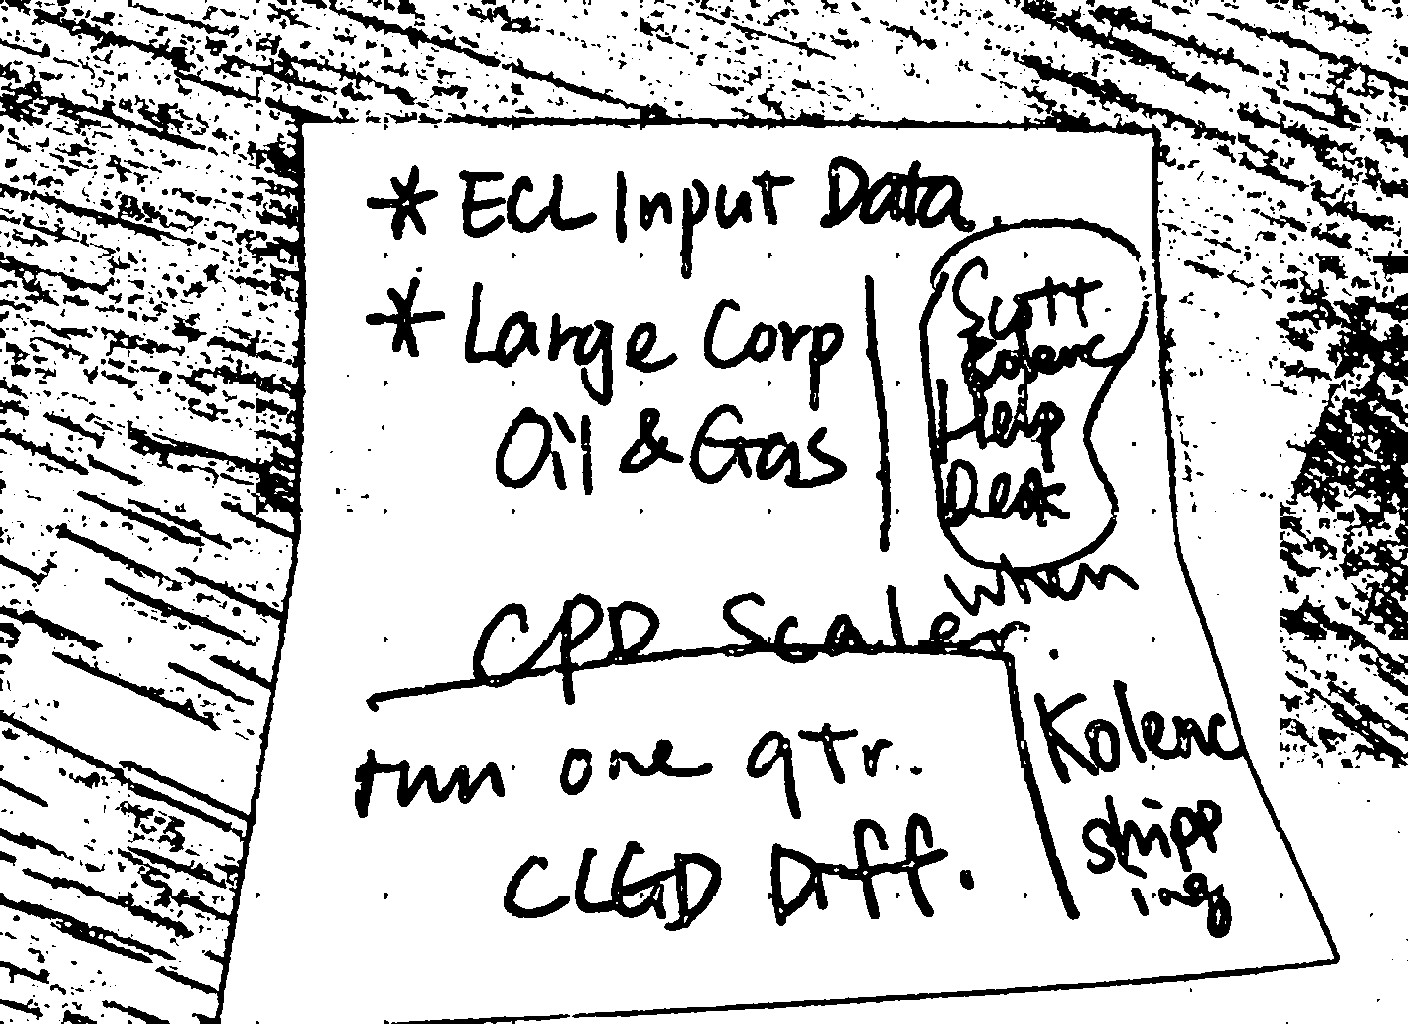 * ECL Input Data
* Large Corp
Oil & Gas
Scott
Kolenc
Help
Desk
when
CPD Scaler
run one qtr.
CLGD Diff.
Kolenc
shipp
ing